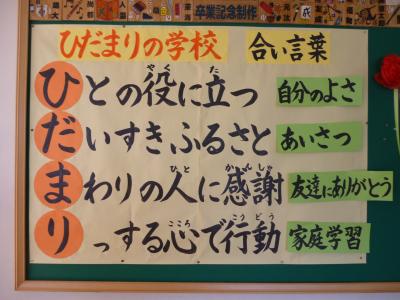 卒業記念制作
ひだまりの学校 合い言葉
ひとの役に立つ 自分のよさ
だいすきふるさと あいさつ
まわりの人に感謝 友達にありがとう
りっする心で行動 家庭学習